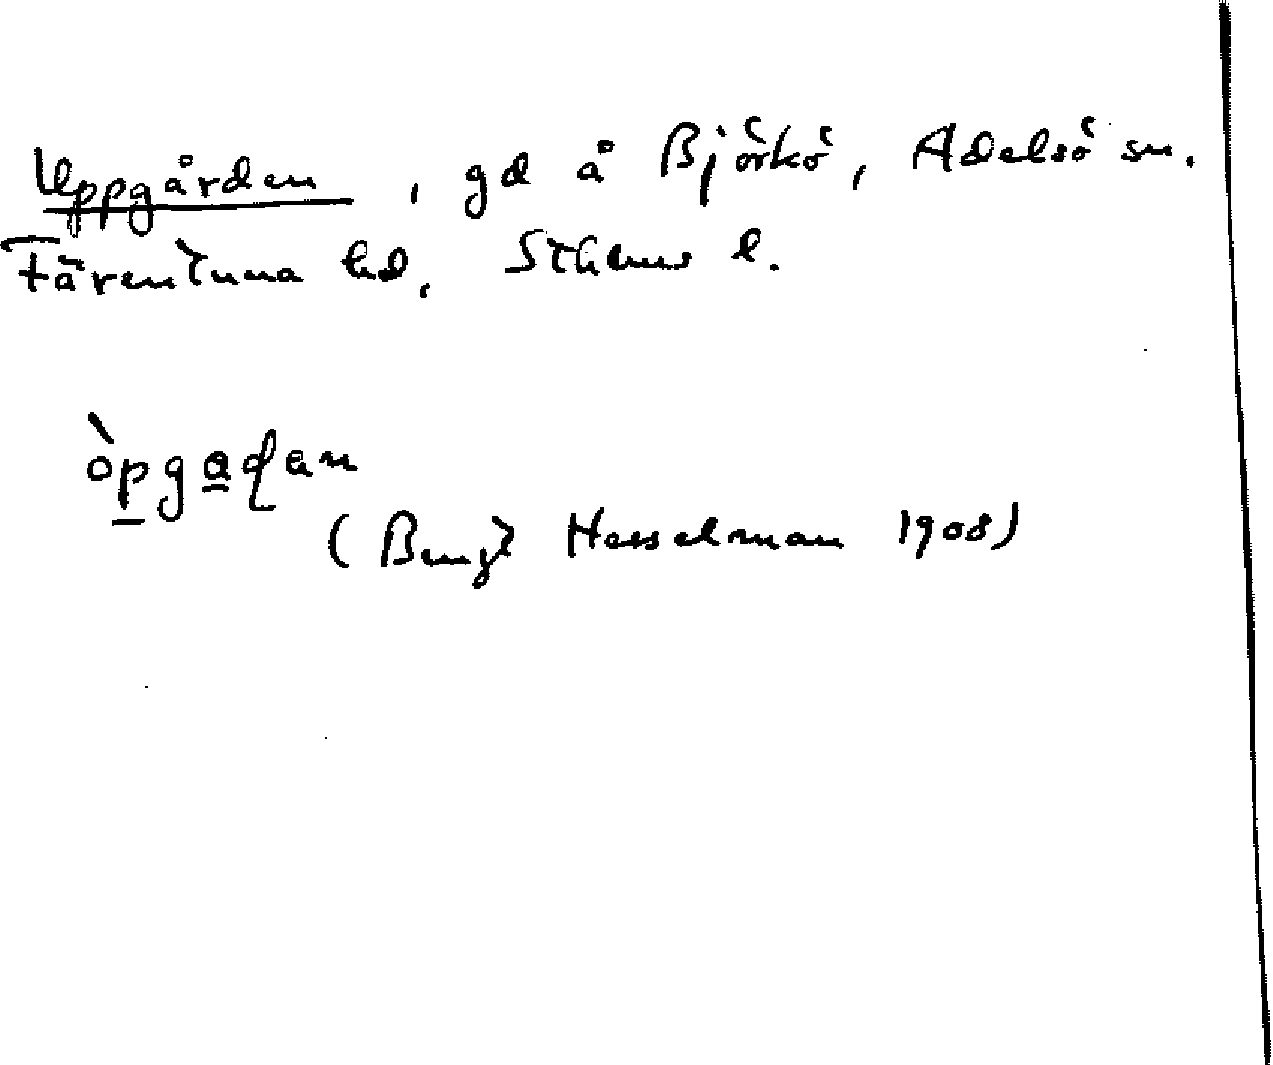 Uppgården, gd å Björkö, Adelsö sn.
Färentuna hd, Sthlms l.
(Bengt Hesselman 1908)